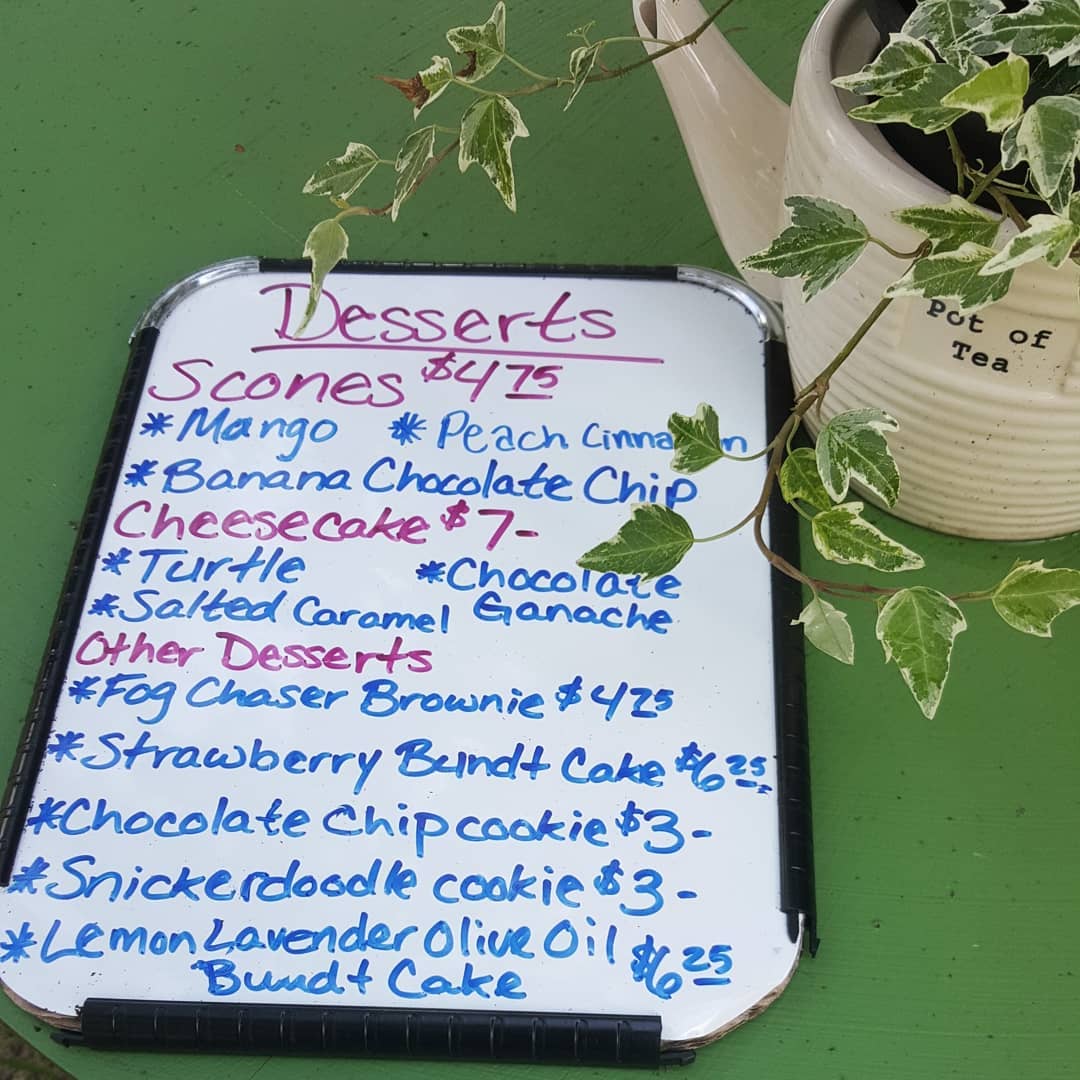 Desserts
Scones $4 75
* Mango * Peach Cinnamon
* Banana Chocolate Chip
Cheesecake $7-
* Turtle * Chocolate
* Salted Caramel Ganache
Other Desserts
* Fog Chaser Brownie $4 25
* Strawberry Bundt Cake $6 25
* Chocolate Chip cookie $3-
* Snickerdoodle cookie $3-
* Lemon Lavender Olive Oil $6 25
Bundt Cake
Pot of
Tea